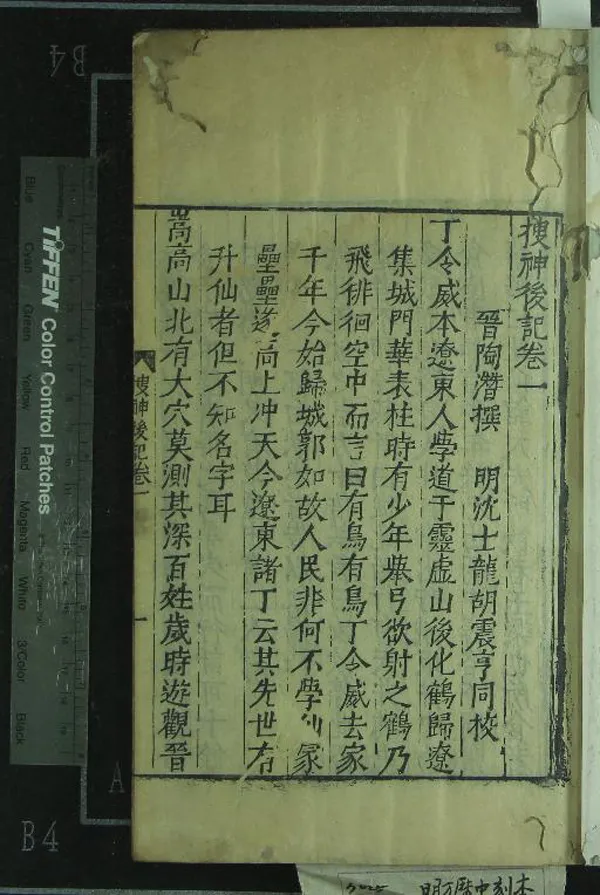 搜神後記卷一
晉陶潛撰　明沈士龍胡震亨同校
丁令威本遼東人學道于靈虛山後化鶴歸遼
集城門華表柱時有少年舉弓欲射之鶴乃
飛徘徊空中而言曰有鳥有鳥丁令威去家
千年今始歸城郭如故人民非何不學仙冢
壘壘遂高上冲天今遼東諸丁云其先世有
升仙者但不知名字耳
嵩高山北有大穴莫測其深百姓歲時遊觀晉
搜神後記卷一
一
TIFFEN® Color Control Patches
Blue
Cyan
Green
Yellow
Red
Magenta
White
3/Color
Black
B4
B4
A
明万歴中刻本